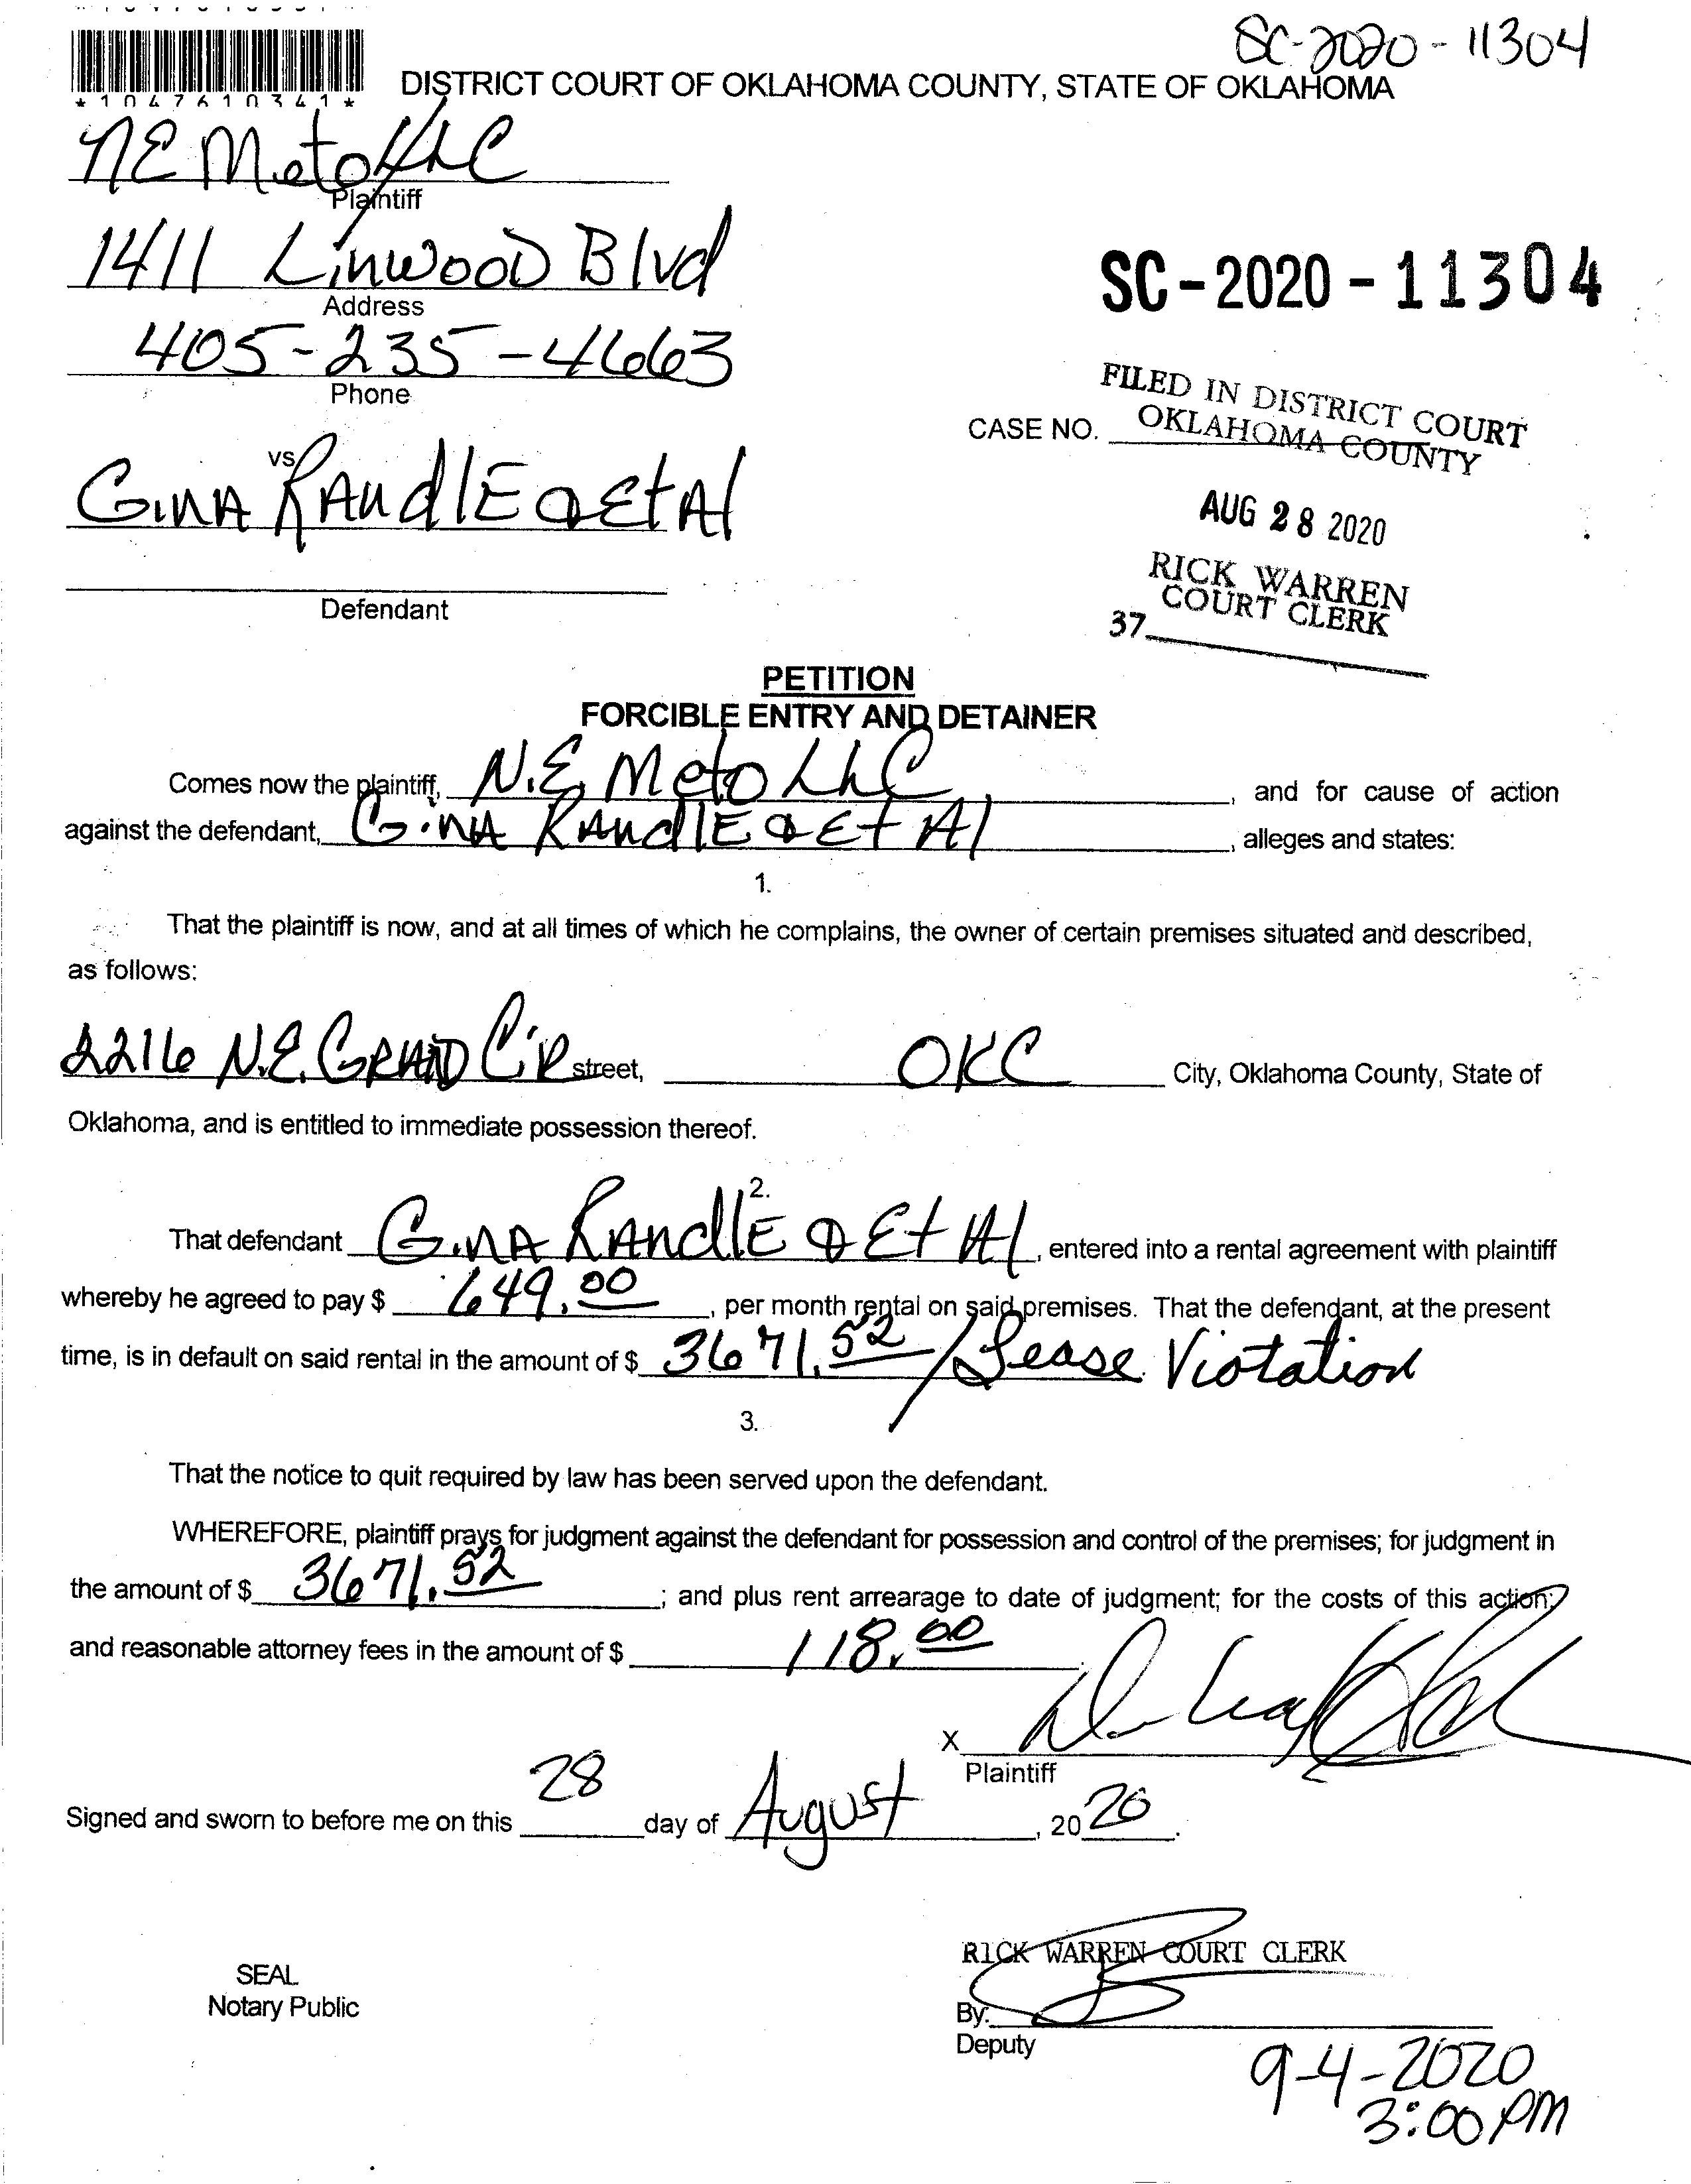 SC-2020-11304
*1047610341*
DISTRICT COURT OF OKLAHOMA COUNTY, STATE OF OKLAHOMA
NE Meto LLC
Plaintiff
1411 Linwood Blvd
Address
SC-2020-11304
405-235-4663
Phone
FILED IN DISTRICT COURT
OKLAHOMA COUNTY
CASE NO.
vs
Gina RandlE & Et Al
AUG 28 2020
RICK WARREN
COURT CLERK
Defendant
37
PETITION
FORCIBLE ENTRY AND DETAINER
Comes now the plaintiff, N.E. Meto LLC, and for cause of action
against the defendant, Gina RandlE & Et Al, alleges and states:
1.
That the plaintiff is now, and at all times of which he complains, the owner of certain premises situated and described,
as follows:
2216 N.E. GRAND CiR street, OKC City, Oklahoma County, State of
Oklahoma, and is entitled to immediate possession thereof.
2.
That defendant Gina RandlE & Et Al, entered into a rental agreement with plaintiff
whereby he agreed to pay $ 649.00, per month rental on said premises. That the defendant, at the present
time, is in default on said rental in the amount of $ 3671.52 / Lease Viotation
3.
That the notice to quit required by law has been served upon the defendant.
WHEREFORE, plaintiff prays for judgment against the defendant for possession and control of the premises; for judgment in
the amount of $ 3671.52; and plus rent arrearage to date of judgment; for the costs of this action;
and reasonable attorney fees in the amount of $ 118.00
X
Plaintiff
Signed and sworn to before me on this 28 day of August, 2020.
RICK WARREN COURT CLERK
SEAL
Notary Public
By:
Deputy
9-4-2020
3:00 PM